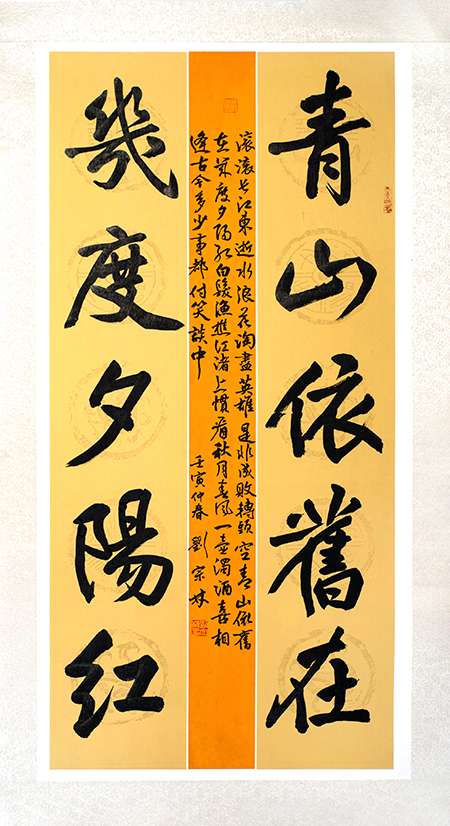 青山依舊在
滚滚长江東逝水浪花淘盡英雄是非成敗轉頭空青山依舊
在幾度夕陽红白髮漁樵江渚上慣看秋月春風一壺濁酒喜相
逢古今多少事都付笑談中
壬寅仲春 劉宗林
幾度夕陽红